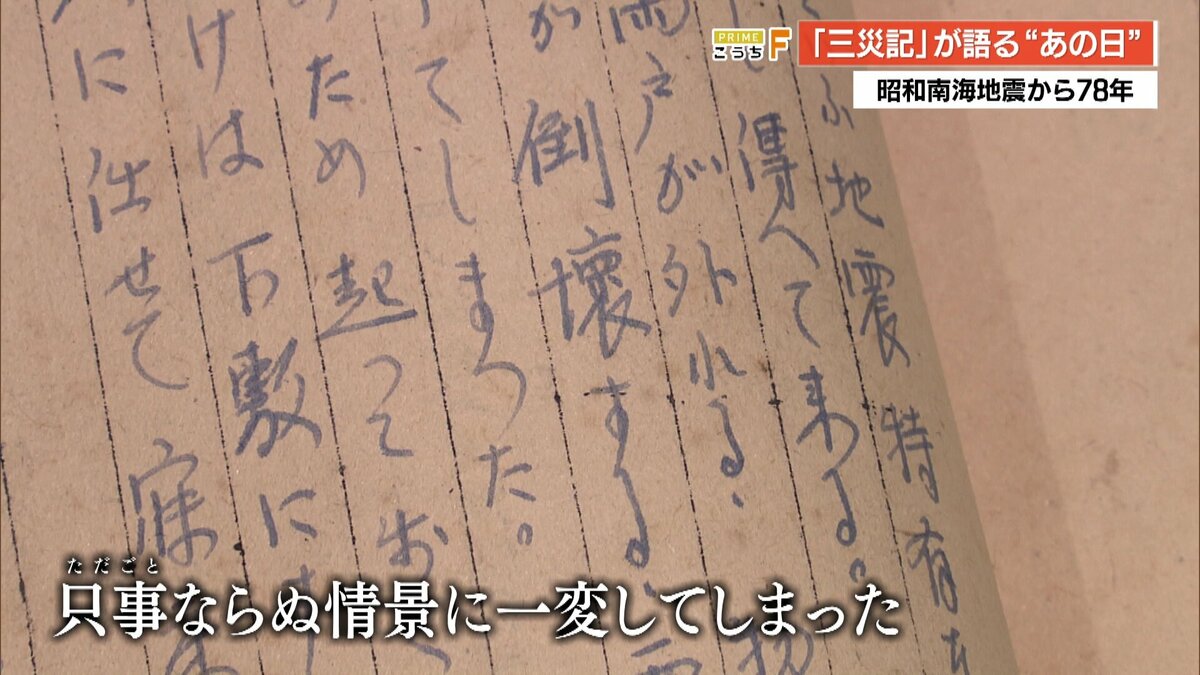 PRIME
こうちF
「三災記」が語る“あの日”
昭和南海地震から78年
ふ地震特有
得へて来る。
雨戸が外れる、
が倒壊する、
てしまつた。
ため起つて
けは下敷に
に任せて寐
ただごと
只事ならぬ情景に一変してしまった